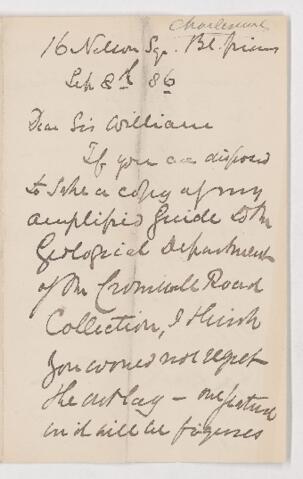 Charlesworth
16 Nelson Sqr. Bl. friars
Sep 8th 86
Dear Sir William
If you are disposed
to take a copy of my
amplified Guide to the
Geological Department
of the Cromwell Road
Collection, I think
you would not regret
the outlay — one feature
in it will be figures